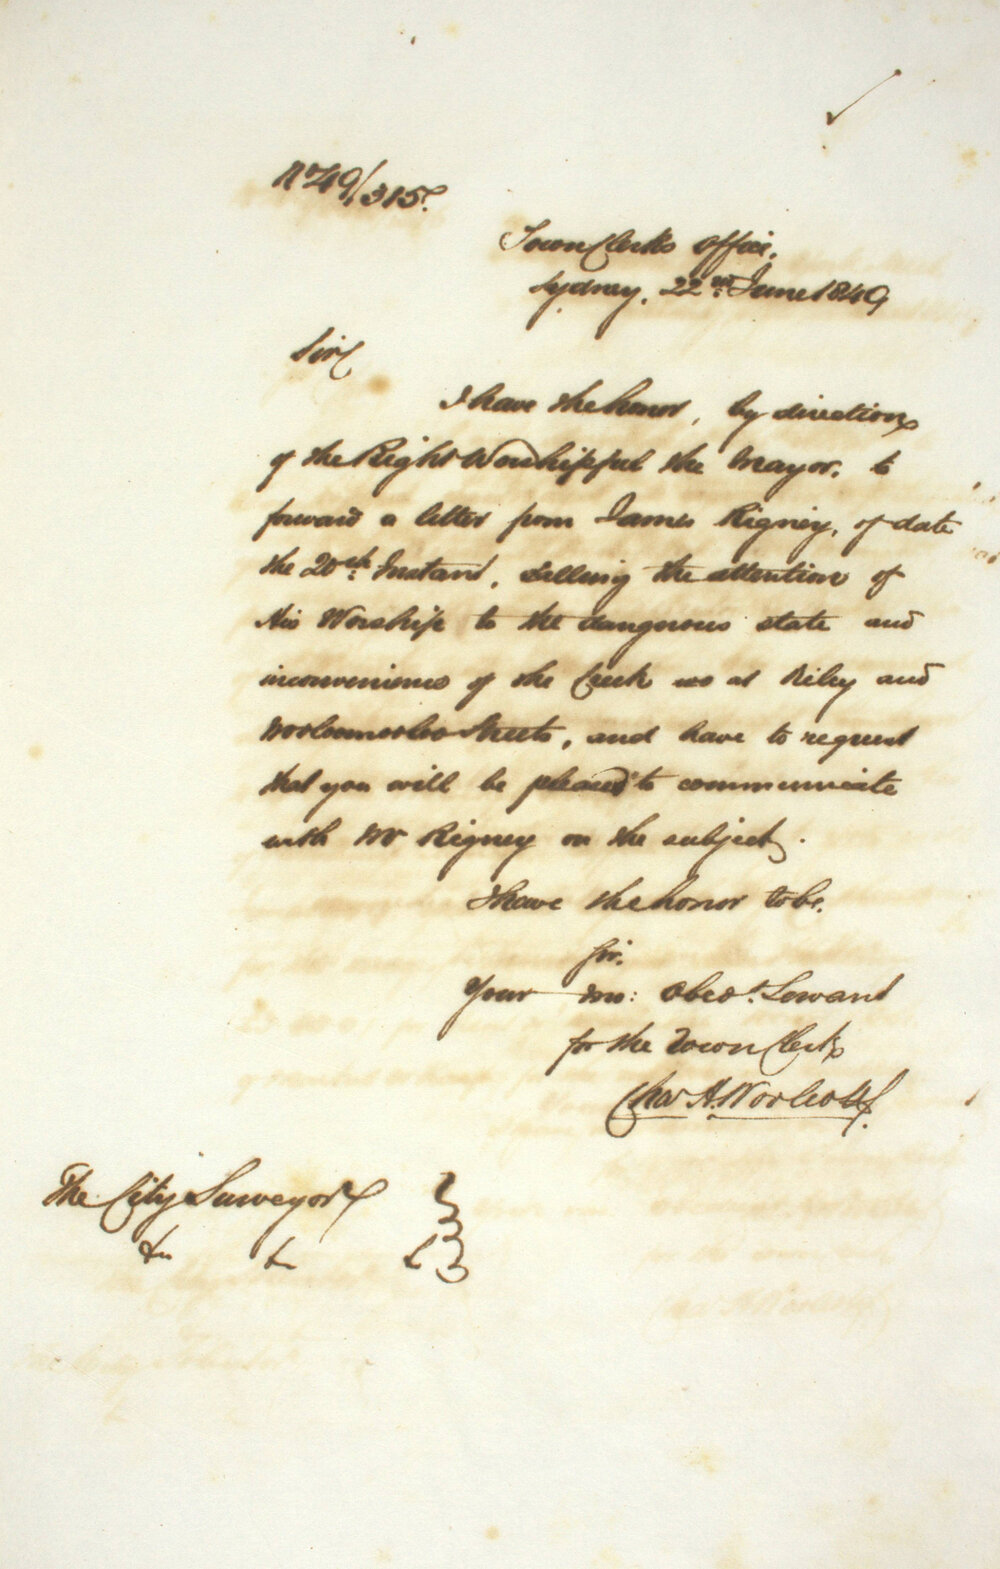 No 49/315.
Town Clerks Office,
Sydney, 22nd June 1849
Sir
I have the honor, by direction
of the Right Worshipful the Mayor, to
forward a letter from James Rigney, of date
the 20th Instant, calling the attention of
His Worship to the dangerous state and
inconvenience of the Creek as at Riley and
Woolloomooloo Streets, and have to request
that you will be pleased to communicate
with Mr Rigney on the subject.
I have the honor to be,
Sir,
Your mo: obedt. Servant
for the Town Clerk
Chas H. Woolcott
The City Surveyor
&c &c &c